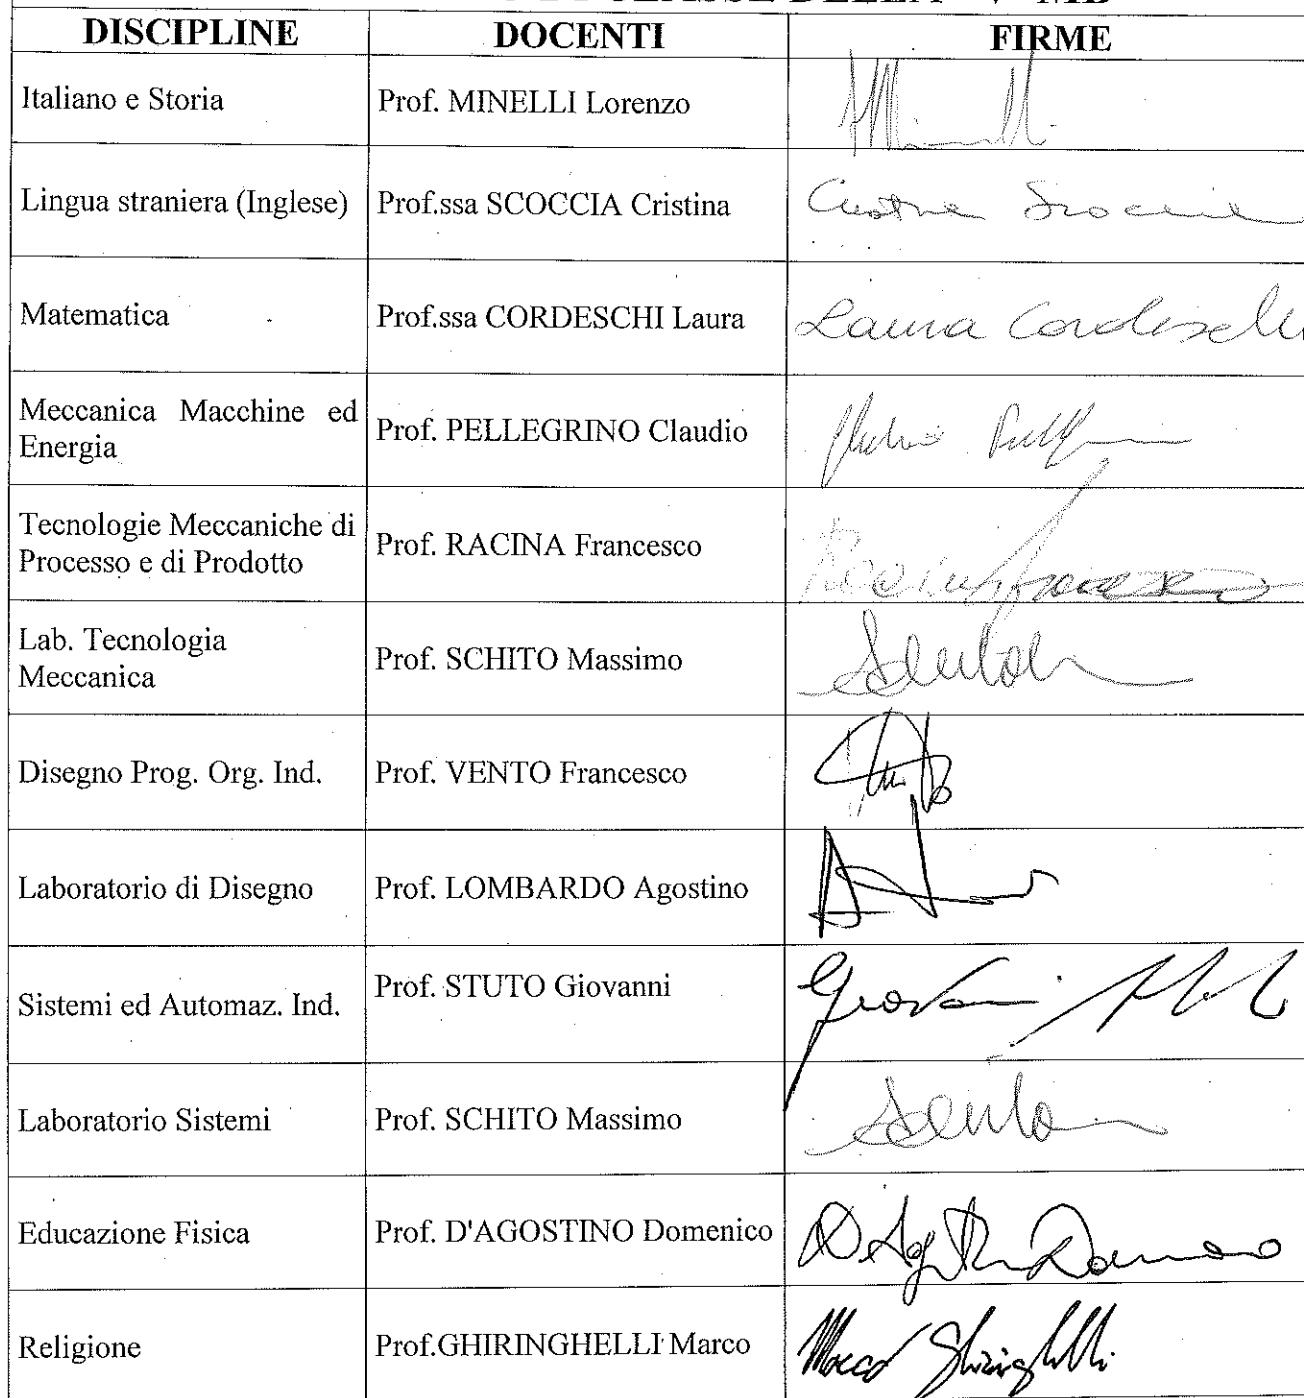 CLASSE DELLA V MB
DISCIPLINE DOCENTI FIRME
Italiano e Storia Prof. MINELLI Lorenzo
Lingua straniera (Inglese) Prof.ssa SCOCCIA Cristina
Matematica Prof.ssa CORDESCHI Laura Laura Cordeschi
Meccanica Macchine ed
Energia
Prof. PELLEGRINO Claudio
Tecnologie Meccaniche di
Processo e di Prodotto
Prof. RACINA Francesco
Lab. Tecnologia
Meccanica
Prof. SCHITO Massimo
Disegno Prog. Org. Ind. Prof. VENTO Francesco
Laboratorio di Disegno Prof. LOMBARDO Agostino
Sistemi ed Automaz. Ind. Prof. STUTO Giovanni Giovanni
Laboratorio Sistemi Prof. SCHITO Massimo
Educazione Fisica Prof. D'AGOSTINO Domenico
Religione Prof.GHIRINGHELLI Marco Marco Ghiringhelli